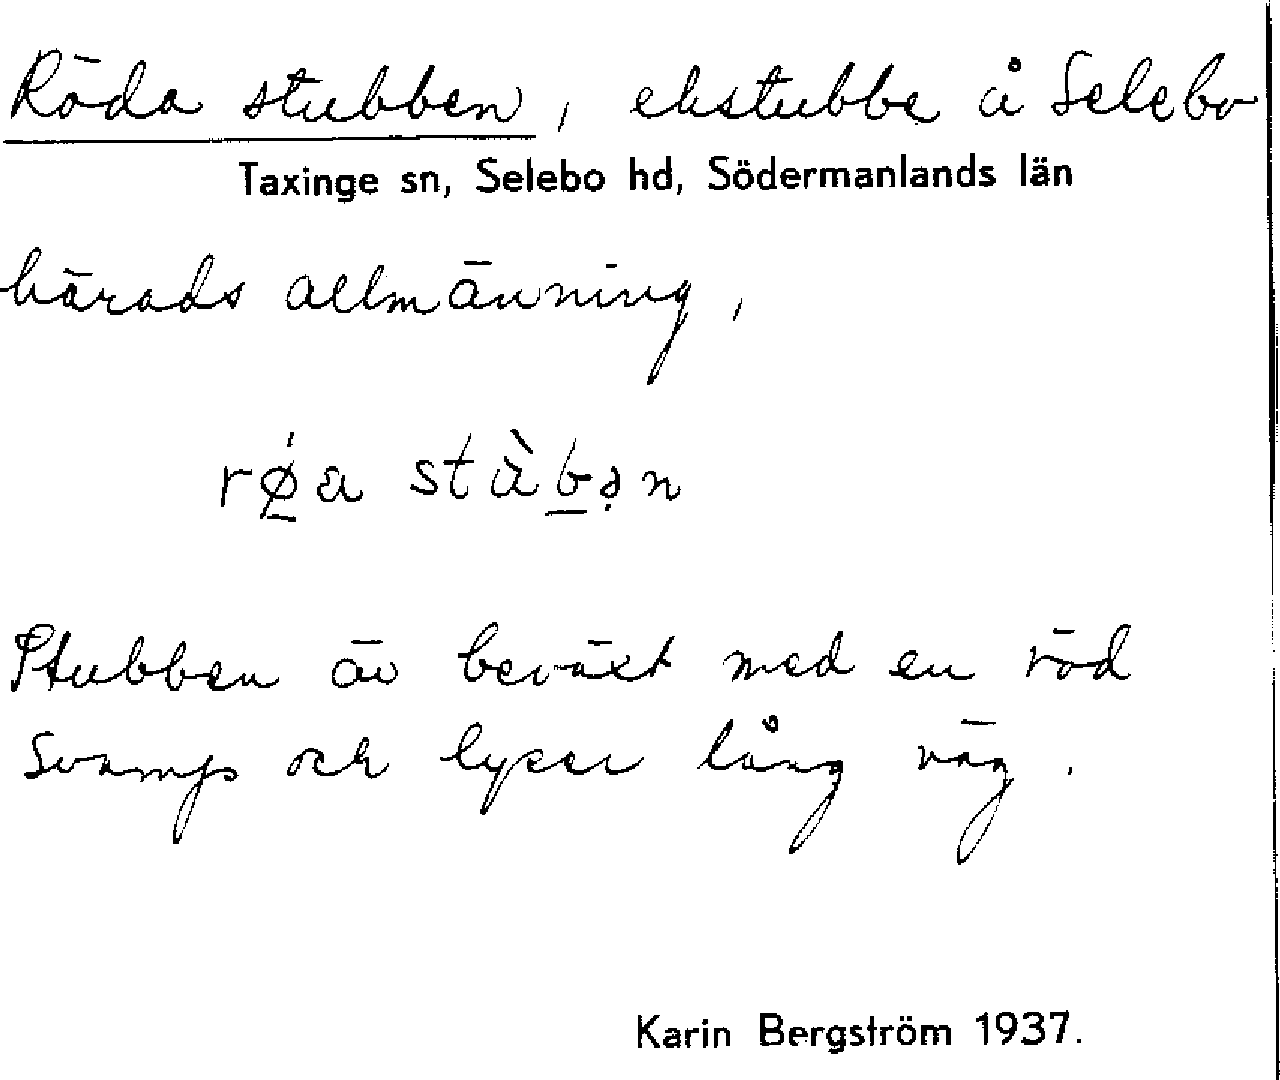 Röda stubben, ekstubbe å Selebo
Taxinge sn, Selebo hd, Södermanlands län
härads allmänning,
rǿ̱a stàḇə̣n
Stubben är beväxt med en röd
svamp och lyser lång väg.
Karin Bergström 1937.